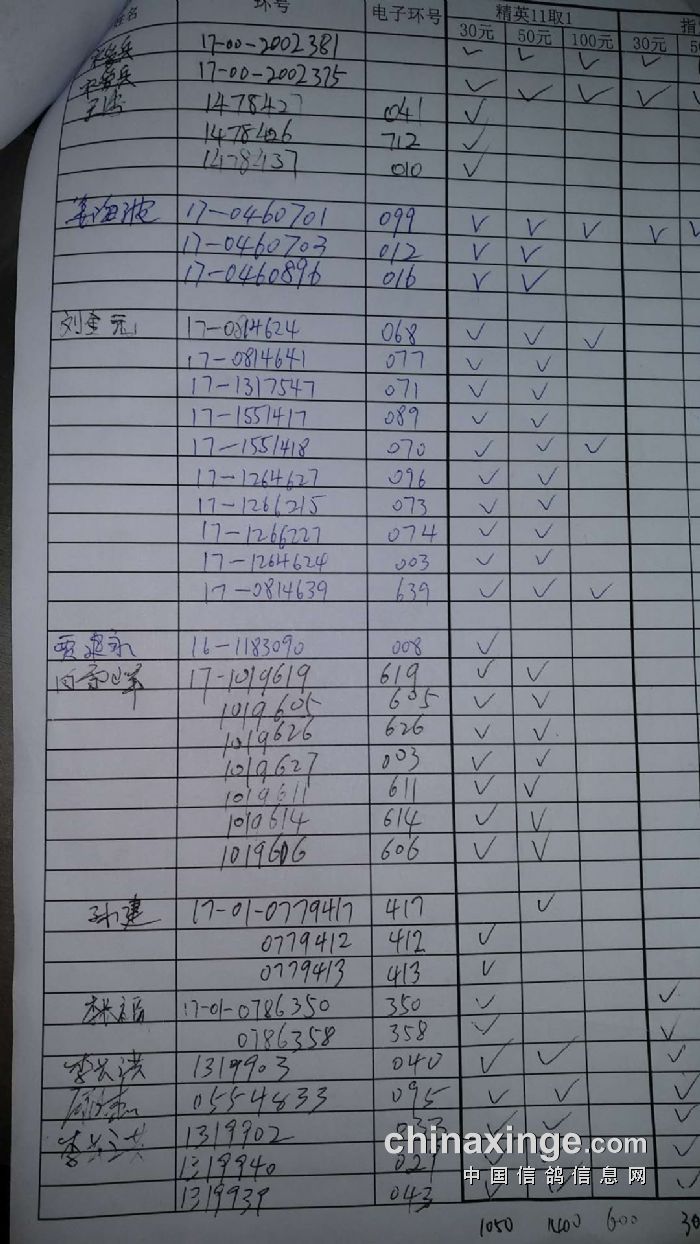 姓名 环号 电子环号 精英11取1 指
30元 50元 100元 30元 5
17-00-2002381 ✓ ✓ ✓ ✓
17-00-2002375 ✓ ✓ ✓ ✓ ✓
1478427 041 ✓
1478426 712 ✓
1478437 010 ✓
17-0460701 099 ✓ ✓ ✓ ✓ ✓
17-0460703 012 ✓ ✓
17-0460896 016 ✓ ✓
刘金元 17-0814624 068 ✓ ✓ ✓
17-0814641 077 ✓ ✓
17-1317547 071 ✓ ✓
17-1551417 089 ✓ ✓
17-1551418 070 ✓ ✓ ✓
17-1264627 096 ✓ ✓
17-1266215 073 ✓ ✓
17-1266227 074 ✓ ✓
17-1264624 003 ✓ ✓
17-0814639 639 ✓ ✓ ✓
16-1183090 008 ✓
17-1019619 619 ✓ ✓
1019605 605 ✓ ✓
1019626 626 ✓ ✓
1019627 003 ✓ ✓
1019611 611 ✓ ✓
1019614 614 ✓ ✓
1019606 606 ✓ ✓
孙建 17-01-0779417 417 ✓
0779412 412 ✓
0779413 413 ✓
17-01-0786350 350 ✓ ✓
0786358 358 ✓ ✓
李兴洪 1319903 040 ✓ ✓ ✓
0554833 095 ✓ ✓ ✓
1319902 033 ✓ ✓ ✓
1319940 021 ✓ ✓ ✓
1319939 043 ✓ ✓ ✓
chinaxinge.com
中国信鸽信息网
1050 1400 600 30